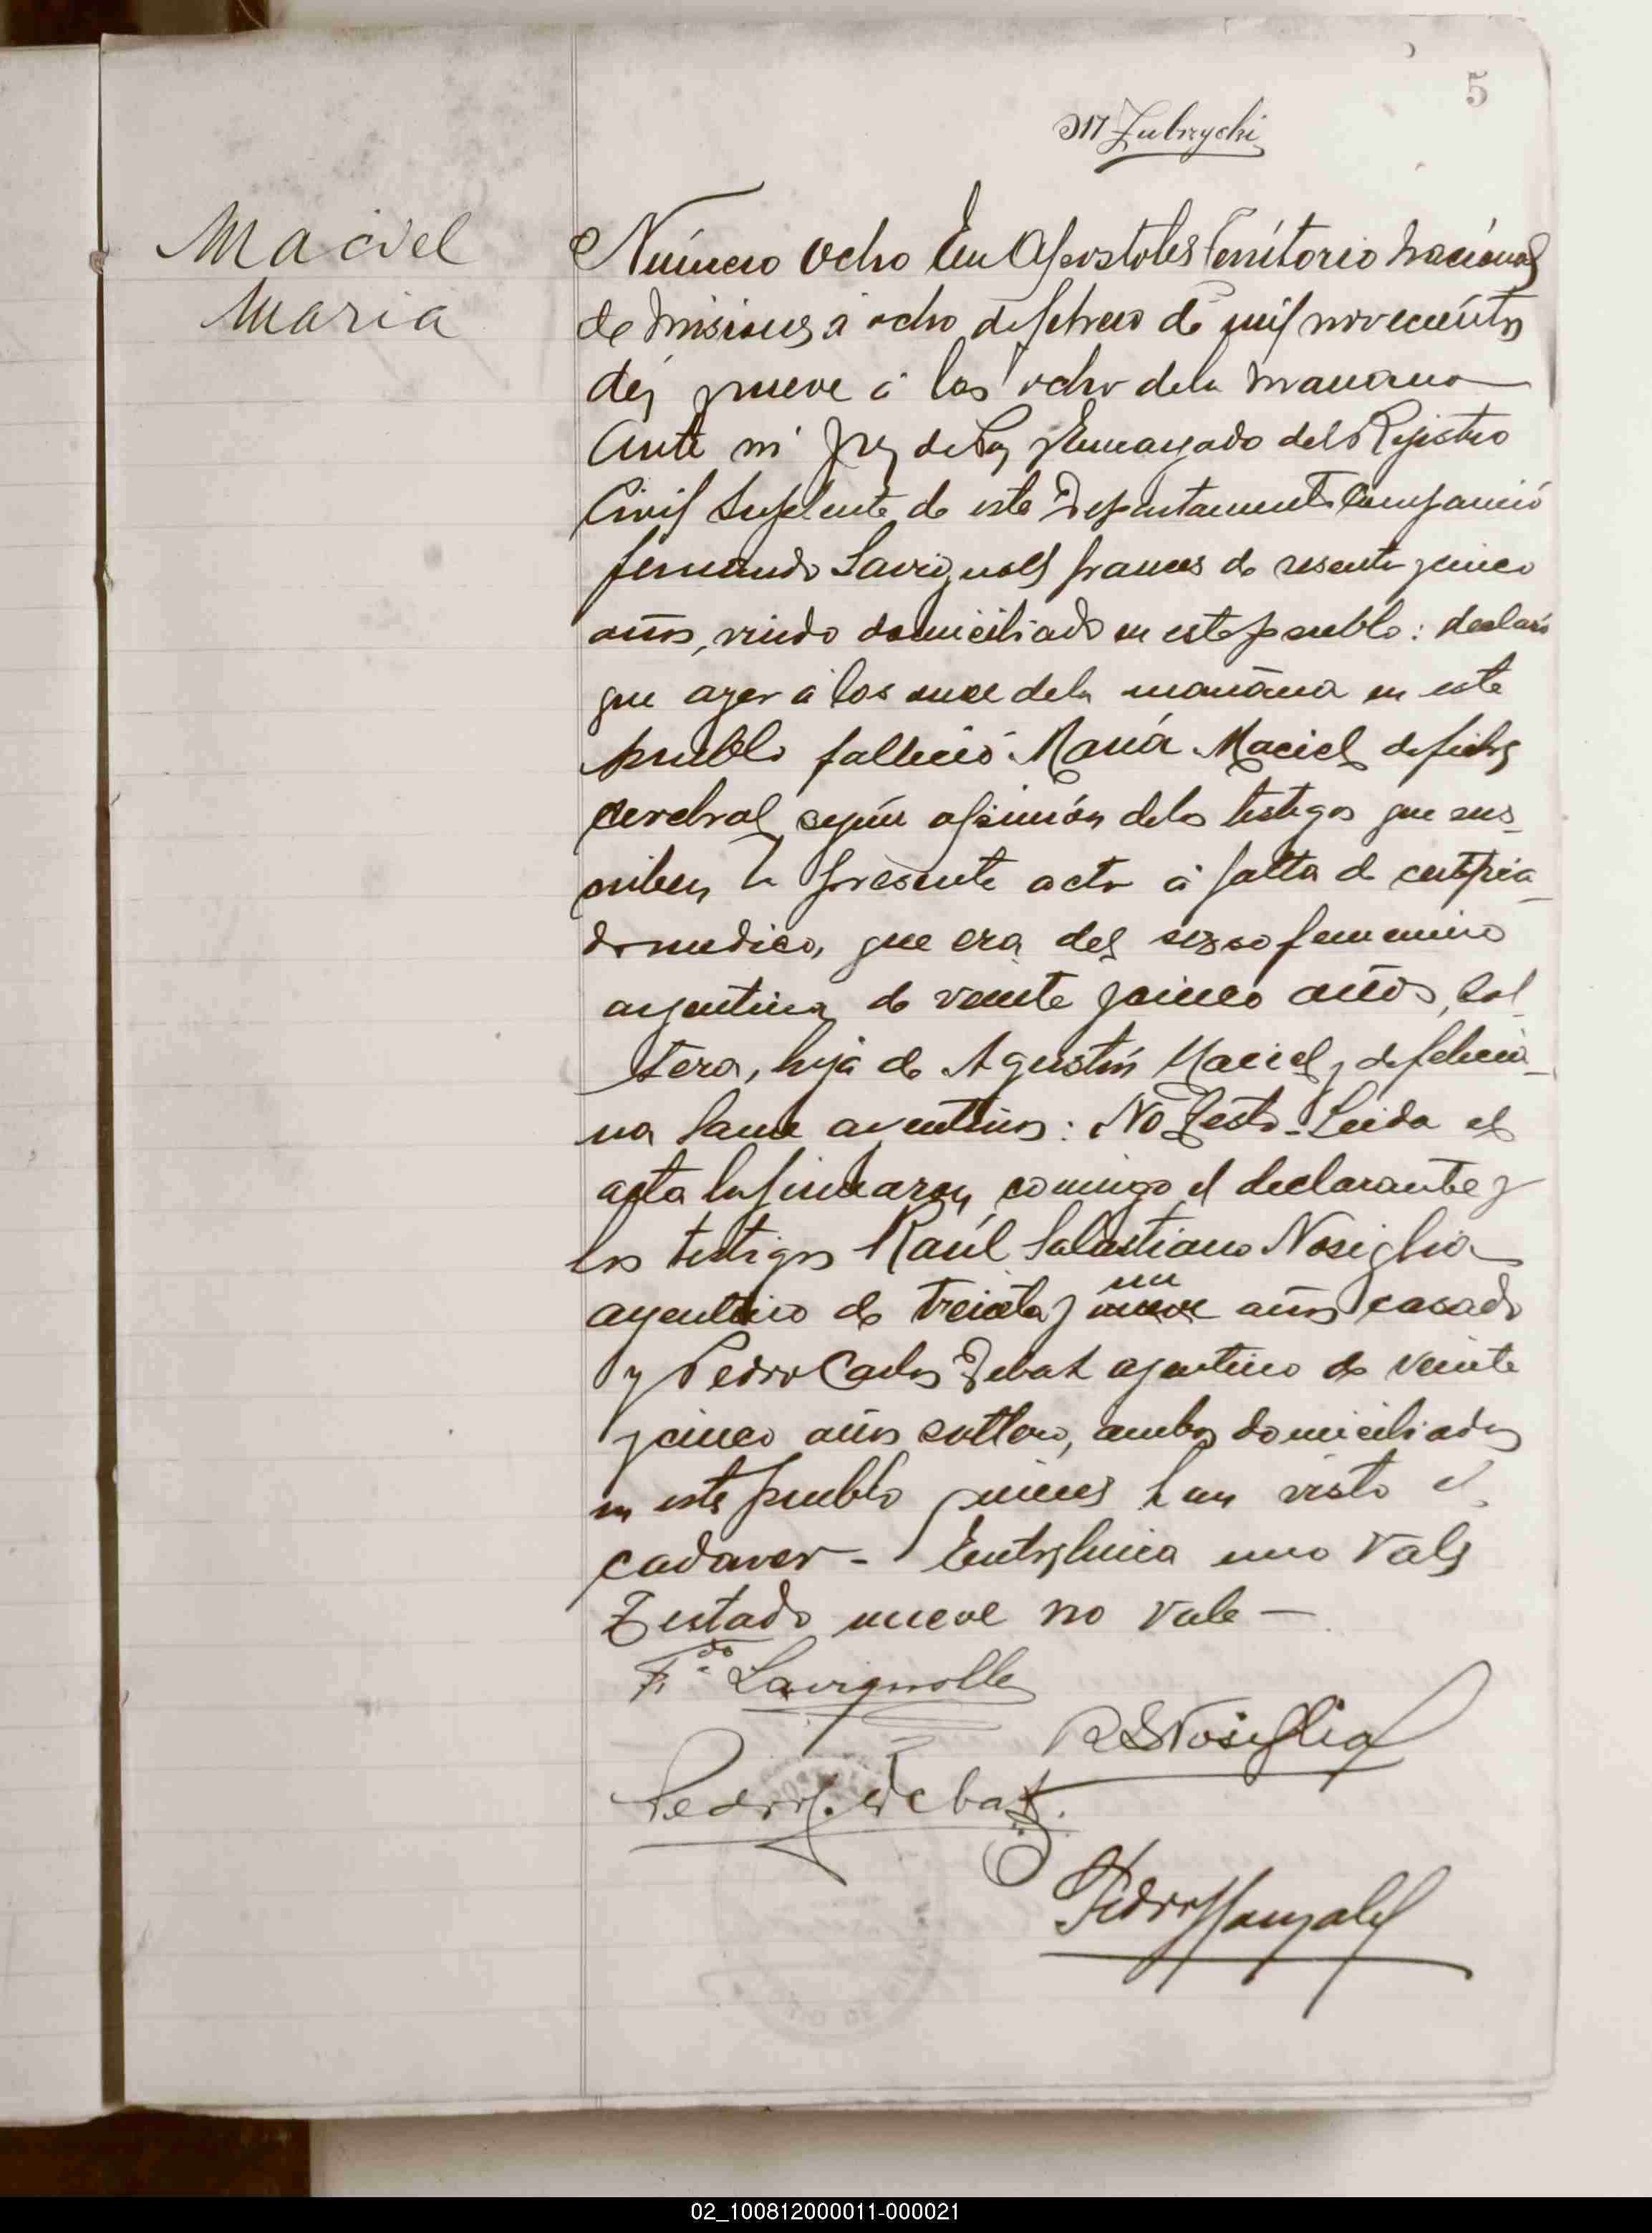 5
M Zubrzycki
Maciel
Maria
Número Ocho En Apostoles Territorio Nacional
de Misiones, á ocho de febrero de mil novecientos
diez y nueve á las ocho de la manana
Ante mi Juez de Paz y Encargado del Rejistro
Civil Suplente de este Departamento Compareció
fernando Lavignolle frances de sesenta y cinco
años, viudo domiciliado en este pueblo: declaró
que ayer á las once de la mañana en este
pueblo falleció María Maciel de fiebre
cerebral, según opinión de los testigos que sus-
criben la presente acta á falta de certifica-
do medico, que era del sexso femenino
argentina, de veinte y cinco años, sol
tera, hija de Agustín Maciel y de felicia-
na argentinos: No Testó - Leida el
acta la firmaron comigo el declarante y
los testigos Raúl Salustiano Nosiglia
argentino de treinta y nueve un años casado
y Pedro Carlos Debat argentino de veinte
y cinco años soltero, ambos domiciliados
en este pueblo quienes han visto el
cadaver - Entrelinea uno Vale
Testado nueve no vale —
F.do Lavignolle
R S Nosiglia
Pedro C. Debat.
Pedro Gonzalez
02_100812000011-000021